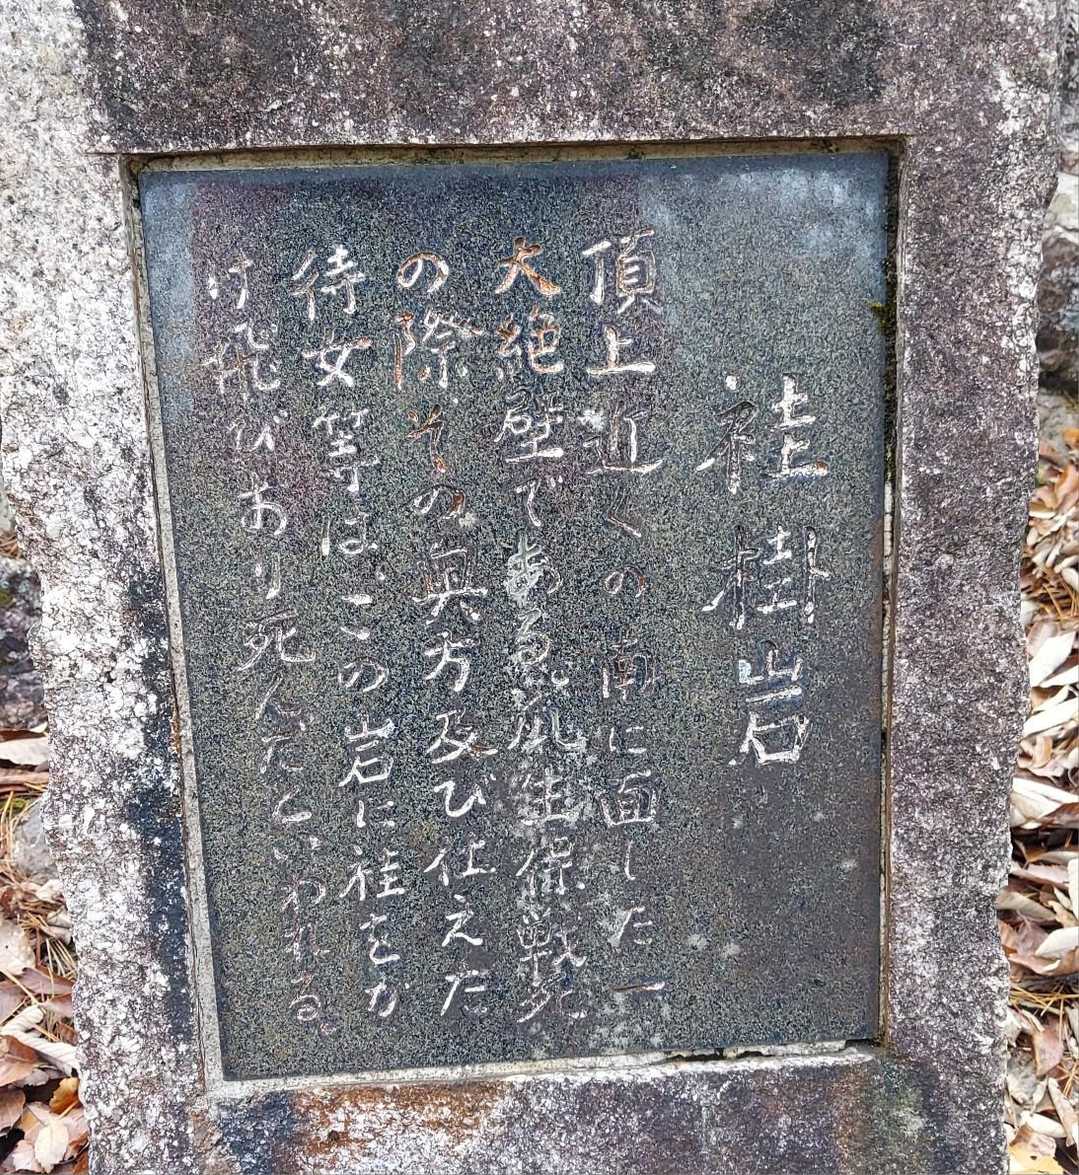 袿掛岩
頂上近くの南に面した一
大絶壁である。瓜生保戦死
の際、その奥方及び仕えた
待女等は、この岩に袿をか
け飛びおり死んだといわれる。